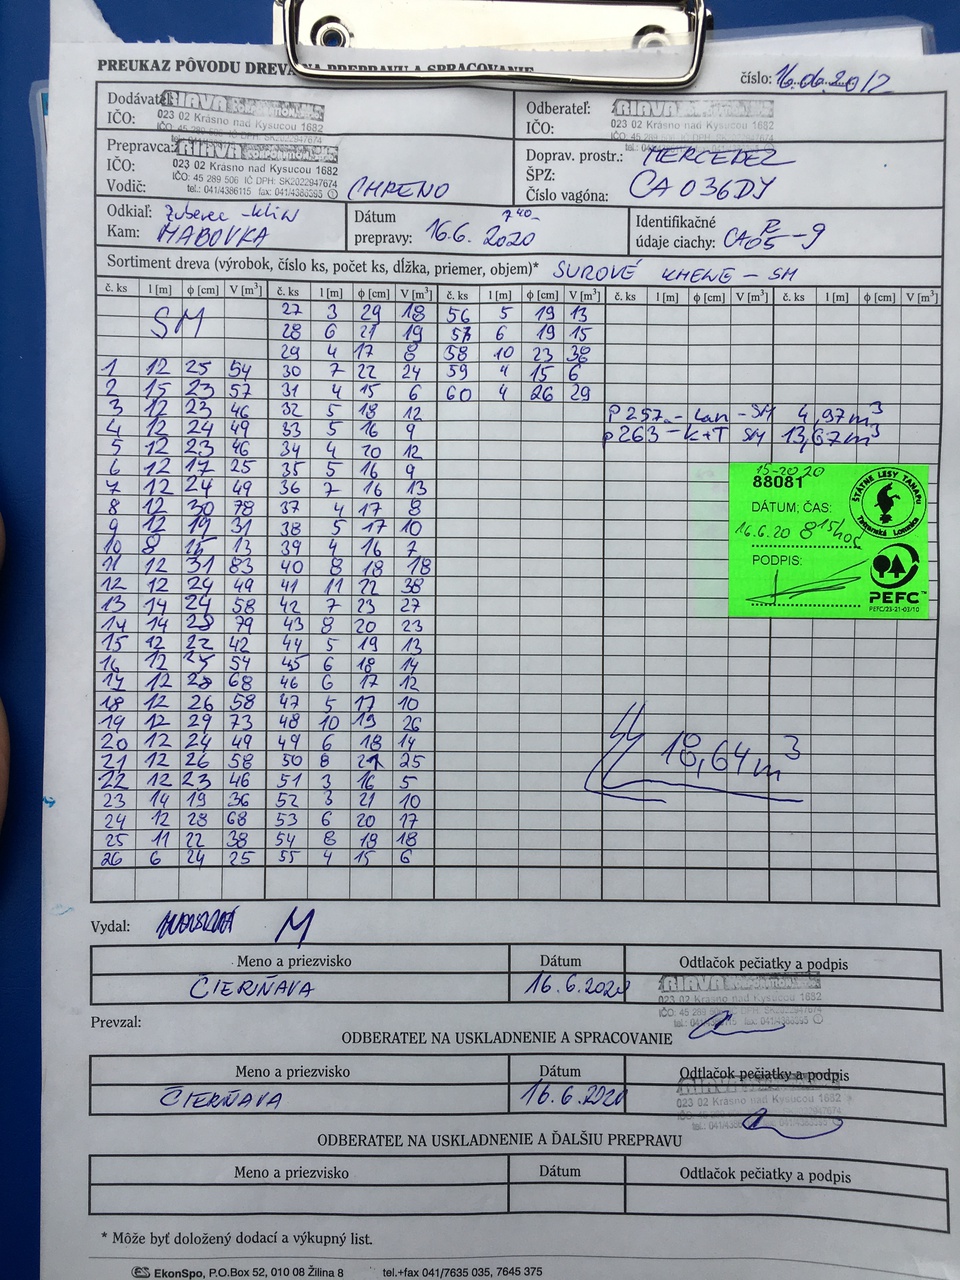 PREUKAZ PÔVODU DREVA NA PREPRAVU A SPRACOVANIE
číslo: 16.06.2012
Dodávat RIAVA
IČO: 023 02 Krásno nad Kysucou 1682
IČO: 45 289 506 IČ DPH: SK2022947674
Odberateľ: RIAVA
IČO: 023 02 Krásno nad Kysucou 1682
IČO: 45 289 506 IČ DPH: SK2022947674
Prepravca: RIAVA
IČO: 023 02 Krásno nad Kysucou 1682
IČO: 45 289 506 IČ DPH: SK2022947674
Vodič: tel.: 041/4386115 fax: 041/4386395 CHRENO
Doprav. prostr.: MERCEDEZ
ŠPZ:
Číslo vagóna: CA036DY
Odkiaľ: Zuberec - Klin
Kam: MABOVKA
Dátum 7 40
prepravy: 16.6. 2020
Identifikačné
údaje ciachy: CA05 - 9
Sortiment dreva (výrobok, číslo ks, počet ks, dĺžka, priemer, objem)* SUROVÉ KMENE - SM
č. ks l [m] ϕ [cm] V [m³] č. ks l [m] ϕ [cm] V [m³] č. ks l [m] ϕ [cm] V [m³] č. ks l [m] ϕ [cm] V [m³] č. ks l [m] ϕ [cm] V [m³]
SM 27 3 29 18 56 5 19 13
28 6 21 19 57 6 19 15
29 4 17 8 58 10 23 38
1 12 25 54 30 7 22 24 59 4 15 6
2 15 23 57 31 4 15 6 60 4 26 29
3 12 23 46 32 5 18 12 P257 - Lan - SM 4,97m³
4 12 24 49 33 5 16 9 P263 - K+T SM 13,67m³
5 12 23 46 34 4 20 12
6 12 17 25 35 5 16 9
7 12 24 49 36 7 16 13
8 12 30 78 37 4 17 8
9 12 19 31 38 5 17 10
10 8 15 13 39 4 16 7
11 12 31 83 40 8 18 18
12 12 24 49 41 11 22 38
13 14 24 58 42 7 23 27
14 14 28 79 43 8 20 23
15 12 22 42 44 5 19 13
16 12 25 54 45 6 18 14
17 12 28 68 46 6 17 12
18 12 26 58 47 5 17 10
19 12 29 73 48 10 19 26
20 12 24 49 49 6 18 14
21 12 26 58 50 8 21 25
22 12 23 46 51 3 16 5
23 14 19 36 52 3 21 10
24 12 28 68 53 6 20 17
25 11 22 38 54 8 19 18
26 6 24 25 55 4 15 6
15-2020
88081
DÁTUM, ČAS:
16.6.20 8 15 hod
PODPIS:
ŠTÁTNE LESY TANAPU
Tatranská Lomnica
PEFC™
PEFC/23-21-03/10
18,64m³
Vydal: M
Meno a priezvisko Dátum Odtlačok pečiatky a podpis
ČIERŇAVA 16.6.2020 RIAVA
023 02 Krásno nad Kysucou 1682
Prevzal:
ODBERATEĽ NA USKLADNENIE A SPRACOVANIE
Meno a priezvisko Dátum Odtlačok pečiatky a podpis
ČIERŇAVA 16.6.2020 RIAVA
023 02 Krásno nad Kysucou 1682
ODBERATEĽ NA USKLADNENIE A ĎALŠIU PREPRAVU
Meno a priezvisko Dátum Odtlačok pečiatky a podpis
* Môže byť doložený dodací a výkupný list.
ES EkonSpo, P.O.Box 52, 010 08 Žilina 8 tel.+fax 041/7635 035, 7645 375